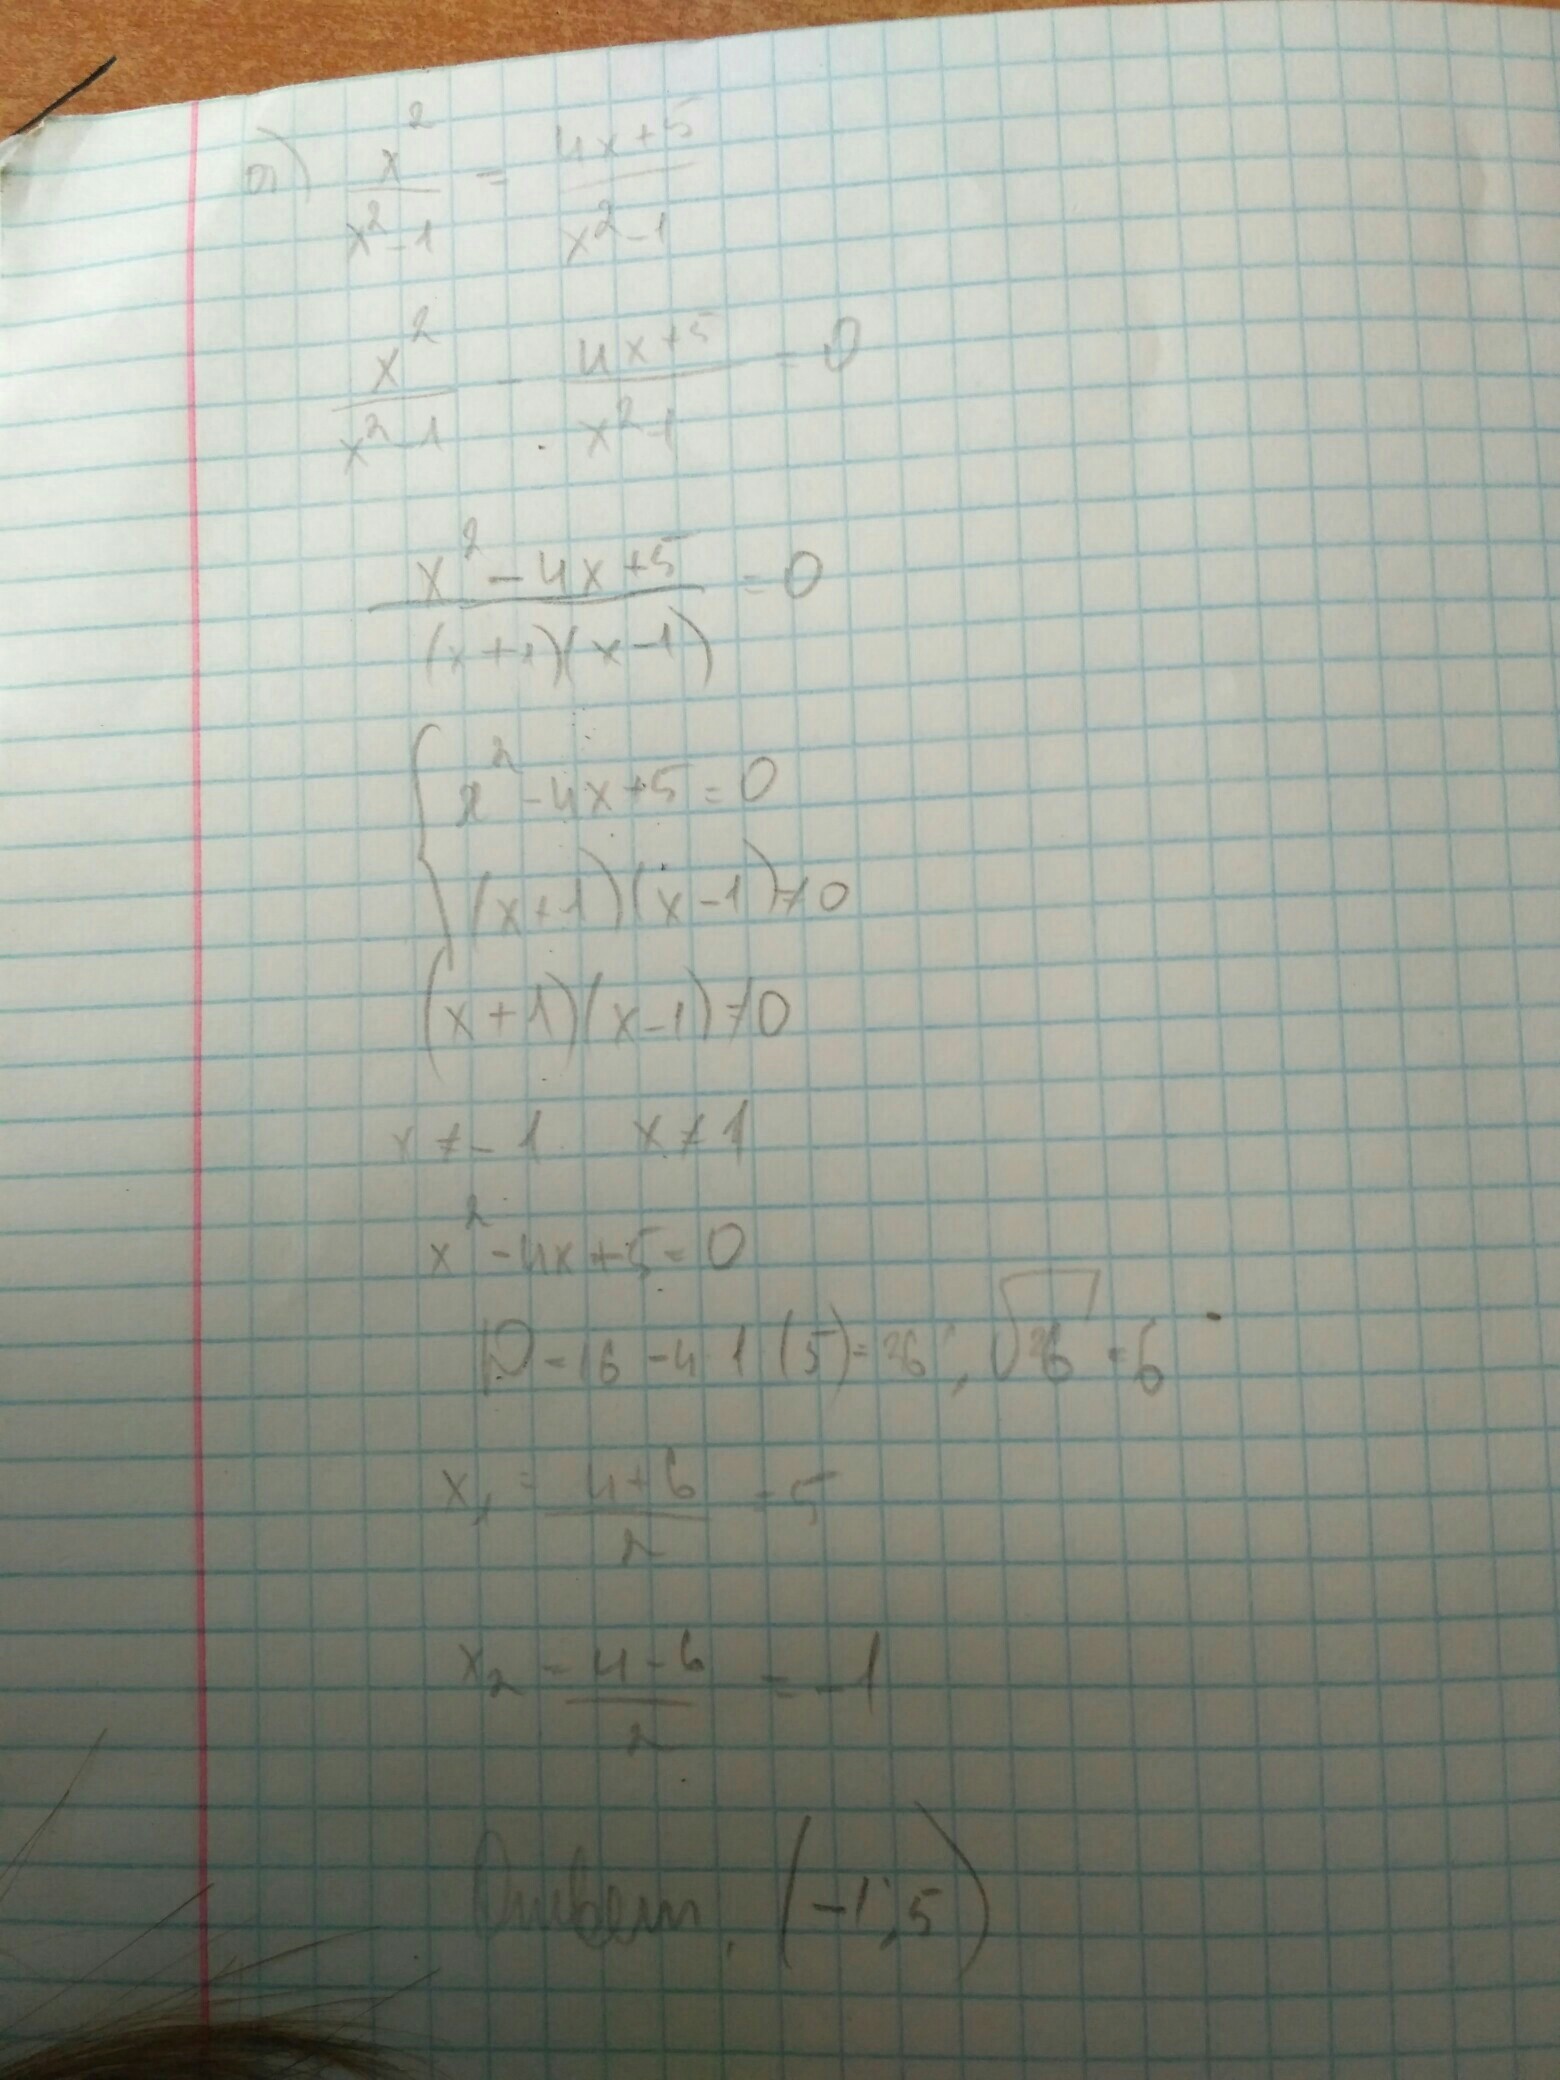 а) x²/(x²-1) = (4x+5)/(x²-1)
x²/(x²-1) - (4x+5)/(x²-1) = 0
(x²-4x+5)/((x+1)(x-1)) = 0
{ x²-4x+5=0
(x+1)(x-1)≠0
(x+1)(x-1)≠0
x≠-1 x≠1
x²-4x+5=0
D=16-4·1(5)=36; √36=6
x₁=(4+6)/2=5
x₂=(4-6)/2=-1
Ответ. (-1;5)